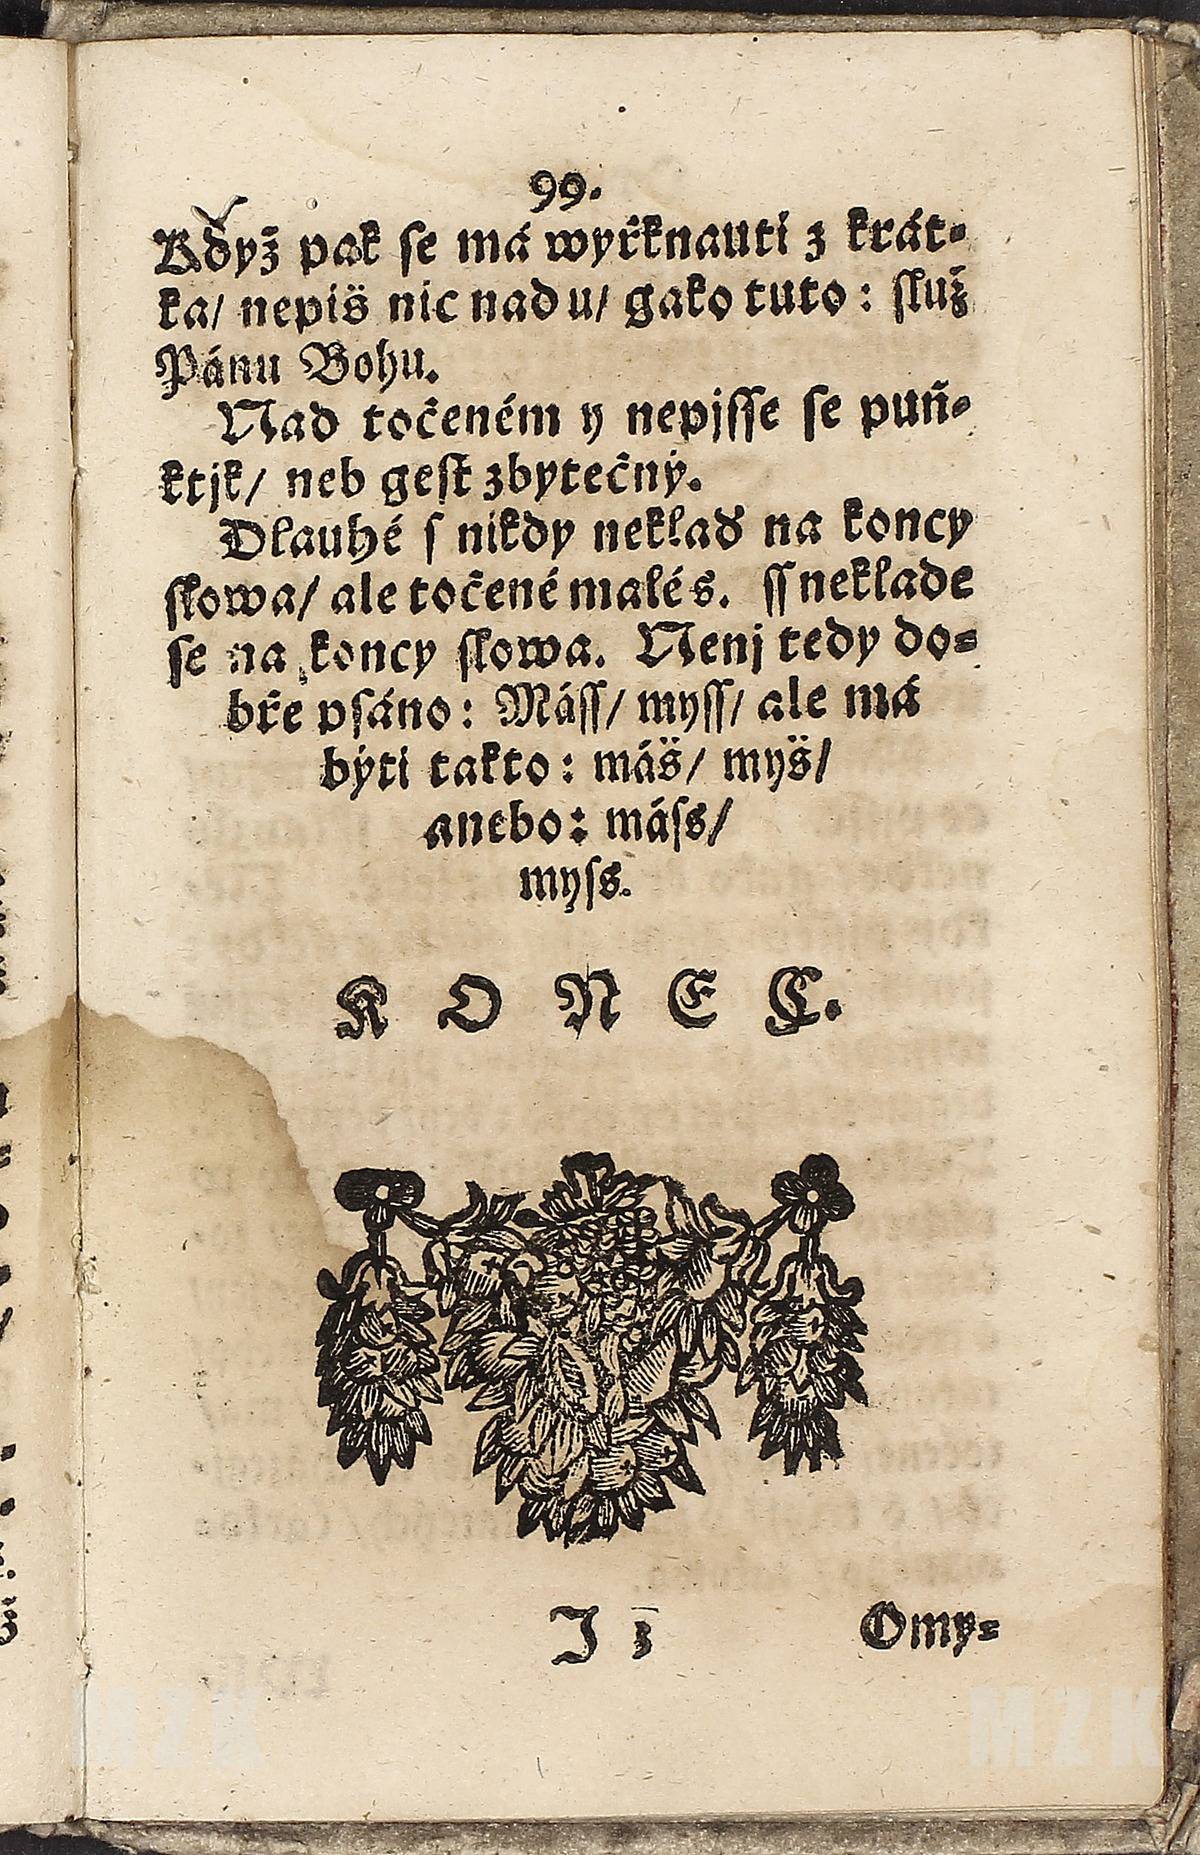 99.
Když pak ſe má wyřknauti z krát⸗
ka/ nepiš nic nad u/ gako tuto: ſluž
Pánu Bohu.
Nad točeném y nepjſſe ſe puň⸗
ktjk/ neb geſt zbytečný.
Dlauhé ſ nikdy neklaď na koncy
ſlowa/ ale točené malé s. ſſ neklade
ſe na koncy ſlowa. Nenj tedy do⸗
bře pſáno: Máſſ/ myſſ/ ale má
býti takto: máš/ myš/
anebo: máſs/
myſs.
K O N E C.
I 3 Omy⸗
MZK MZK